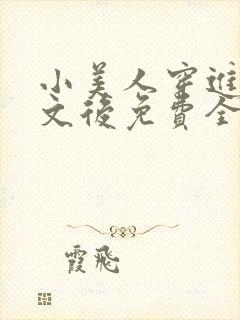 小美人穿進
文後免費全
霞飛